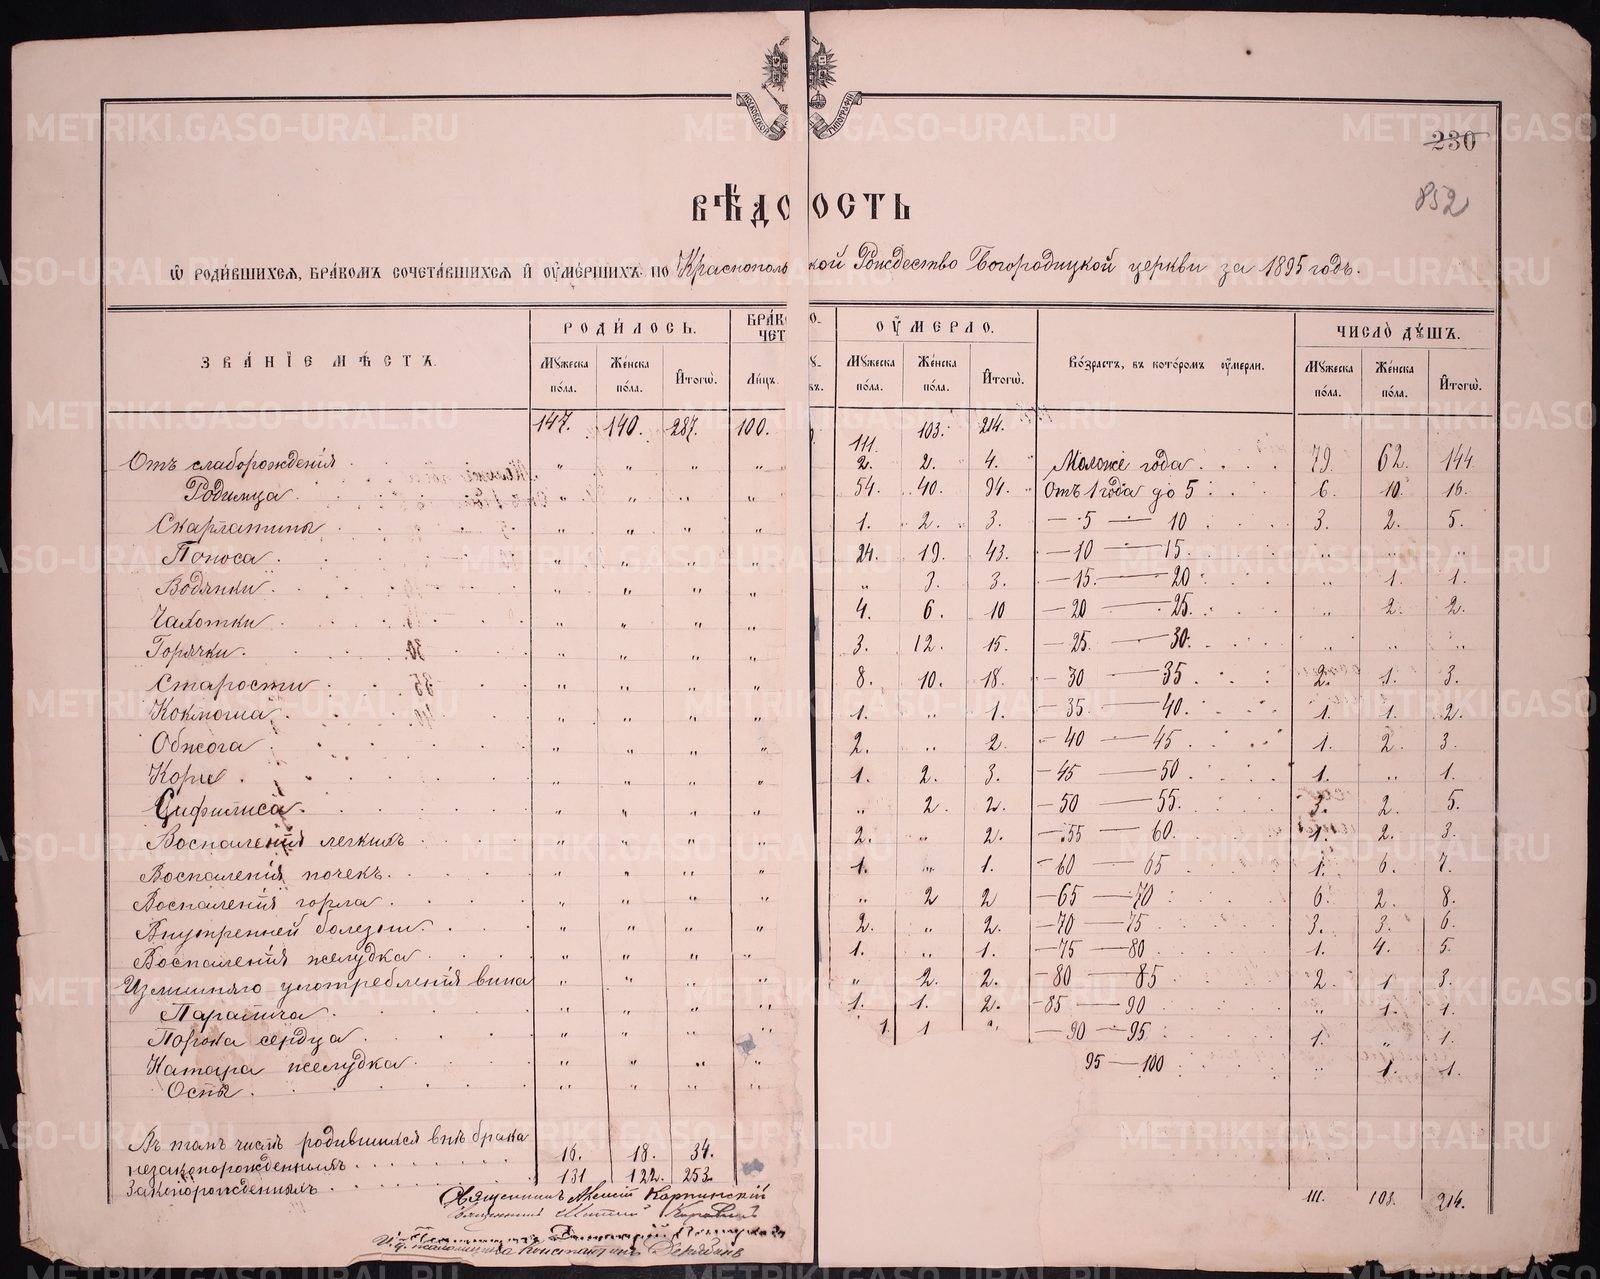 МОСКОВСКОЙ ТИПОГРАФІИ
230
852
ВѢДОМОСТЬ
Ѡ РОДИ́ВШИХСѦ, БРА́КОМЪ СОЧЕТА́ВШИХСѦ И҆ ОУ҆МЕ́РШИХЪ ПО Краснопольской Рождество Богородицкой церкви за 1895 годъ.
ЗВА́НІЕ МѢ́СТЪ. РОДИ́ЛОСЬ. БРА́КО ЧЕТ О҆У́МЕРЛО. Во́зрастъ, въ кото́ромъ оу҆мерли. ЧИСЛО̀ ДꙊ́ШЪ.
Мꙋ́жеска по́ла. Же́нска по́ла. И҆того̀. Ли́цъ. Мꙋ́жеска по́ла. Же́нска по́ла. И҆того̀. Мꙋ́жеска по́ла. Же́нска по́ла. И҆того̀.
147. 140. 287. 100. 111. 103. 214.
Отъ слаборожденія " " " " 2. 2. 4. Моложе года 79. 62. 144
Родимца " " " " 54. 40. 94. Отъ 1 года до 5 6. 10. 16.
Скарлатины " " " " 1. 2. 3. — 5 — 10 3. 2. 5.
Поноса " " " " 24. 19. 43. — 10 — 15 " " "
Водянки " " " " " 3. 3. — 15. — 20 " 1. 1.
Чахотки " " " " 4. 6. 10 — 20 — 25. " 2. 2.
Горячки " " " " 3. 12. 15. — 25. — 30. " " "
Старости " " " " 8. 10. 18. — 30 — 35 2. 1. 3.
Коклюша " " " " 1. " 1. — 35 — 40. 1. 1. 2.
Обжога " " " " 2. " 2. — 40 — 45 1. 2. 3.
Кори " " " " 1. 2. 3. — 45 — 50 1. " 1.
Сифилиса " " " " " 2. 2. — 50 — 55. 3. 2. 5.
Воспаленія легкихъ " " " " 2. " 2. — 55 — 60. 1. 2. 3.
Воспаленія почекъ " " " " 1. " 1. — 60 — 65 1. 6. 7.
Воспаленія горла " " " " " 2 2 — 65 — 70 6. 2. 8.
Внутренней болезни " " " " 2. " 2. — 70 — 75 3. 3. 6.
Воспаленія желудка " " " " 1. " 1. — 75 — 80 1. 4. 5.
Излишняго употребленія вина " " " " " 2. 2. — 80 — 85 2. 1 3.
Паралича " " " " 1. 1. 2. — 85 — 90 " 1. 1.
Порока сердца " " " " 1. 1 " — 90 — 95 1. " 1.
Катара желудка " " " " 95 — 100 " 1. 1.
Оспы " " " "
Въ томъ числѣ родившихся внѣ брака
незаконорожденныхъ 16. 18. 34.
Законорожденныхъ 131 122. 253. 111. 103. 214.
Священникъ Алексій Карпинскій
Священникъ
И. д. псаломщика Константинъ